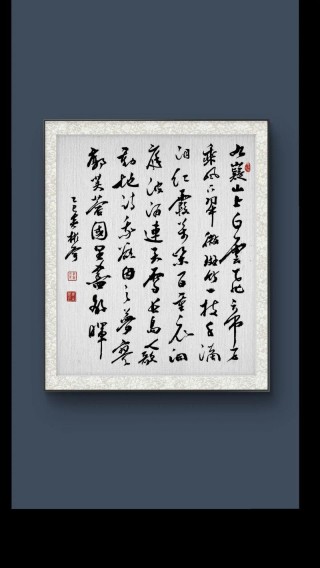 九嶷山上白雲飛帝子
乘風下翠微斑竹一枝千滴
泪紅霞萬朵百重衣洞
庭波涌連天雪長島人歌
動地詩我欲因之夢寥
廓芙蓉國里盡朝暉
乙巳